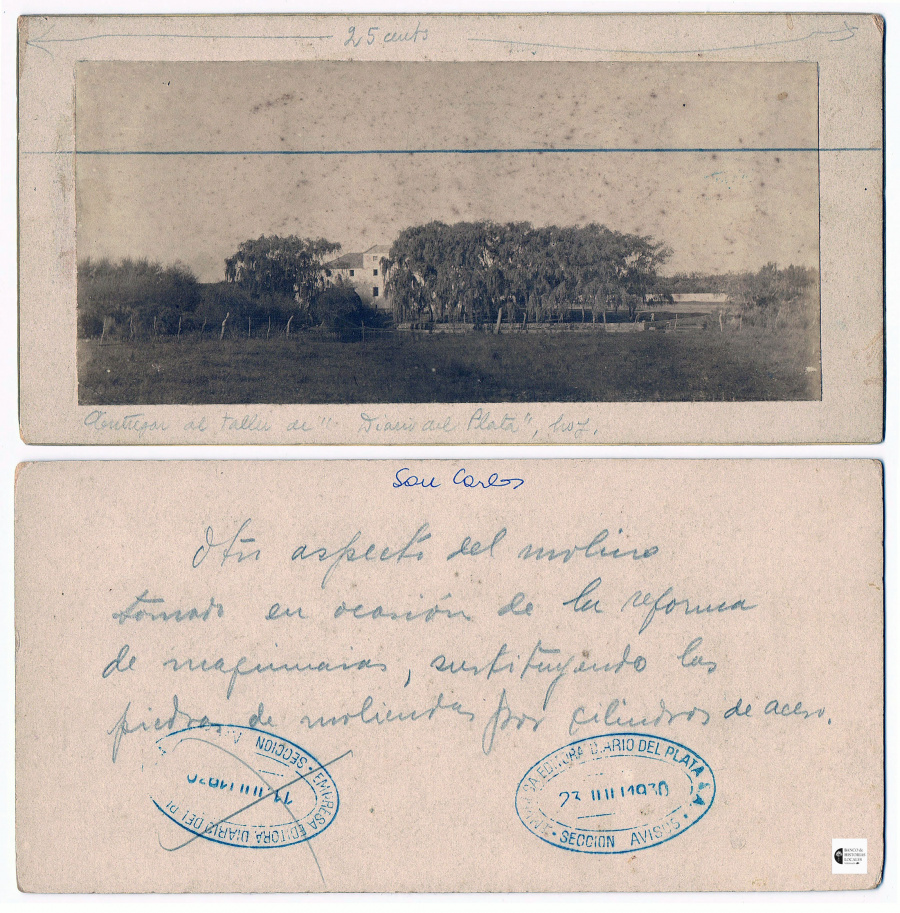 25 cents
Entregar al taller de "Diario del Plata", hoy.
San Carlos
Otro aspecto del molino
tomado en ocasión de la reforma
de maquinarias, sustituyendo las
piedras de moliendas por cilindros de acero.
EMPRESA EDITORA DIARIO DEL PL
SECCION
EMPRESA EDITORA DIARIO DEL PLATA S.A.
23 1930
SECCION AVISOS
BANCO de
HISTORIAS
LOCALES